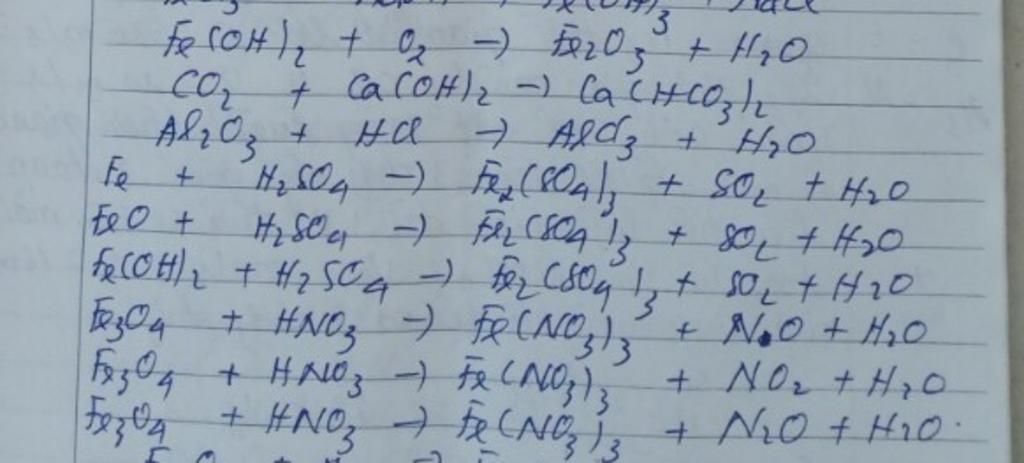 Fe(OH)3 + NaCl
Fe(OH)2 + O2 → Fe2O3 + H2O
CO2 + Ca(OH)2 → Ca(HCO3)2
Al2O3 + HCl → AlCl3 + H2O
Fe + H2SO4 → Fe2(SO4)3 + SO2 + H2O
FeO + H2SO4 → Fe2(SO4)3 + SO2 + H2O
Fe(OH)2 + H2SO4 → Fe2(SO4)3 + SO2 + H2O
Fe3O4 + HNO3 → Fe(NO3)3 + NO + H2O
Fe3O4 + HNO3 → Fe(NO3)3 + NO2 + H2O
Fe3O4 + HNO3 → Fe(NO3)3 + N2O + H2O.